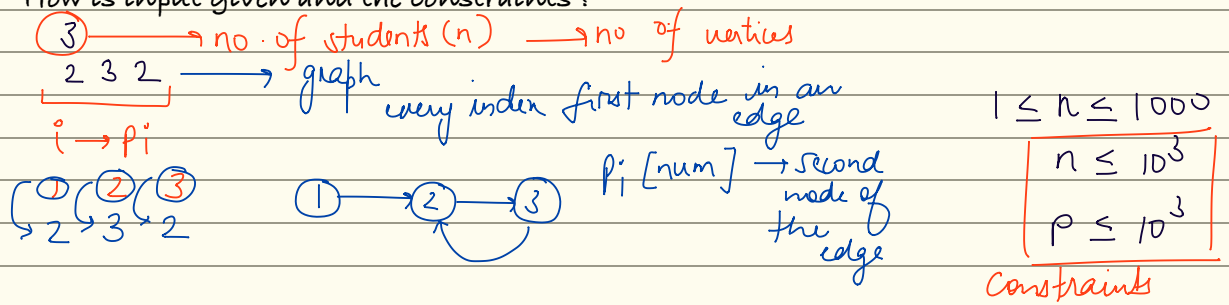 How is input given and the constraints?
3 → no. of students (n) → no of vertices
2 3 2 → graph
every index first node in an edge
i → Pi
Pi [num] → second node of the edge
1 2 3
2 3 2
1 → 2 → 3
1 ≤ n ≤ 1000
n ≤ 10³
p ≤ 10³
Constraints